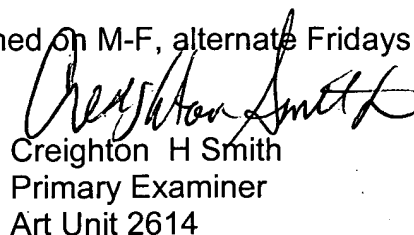 ned on M-F, alternate Fridays
Creighton Smith
Creighton H Smith
Primary Examiner
Art Unit 2614